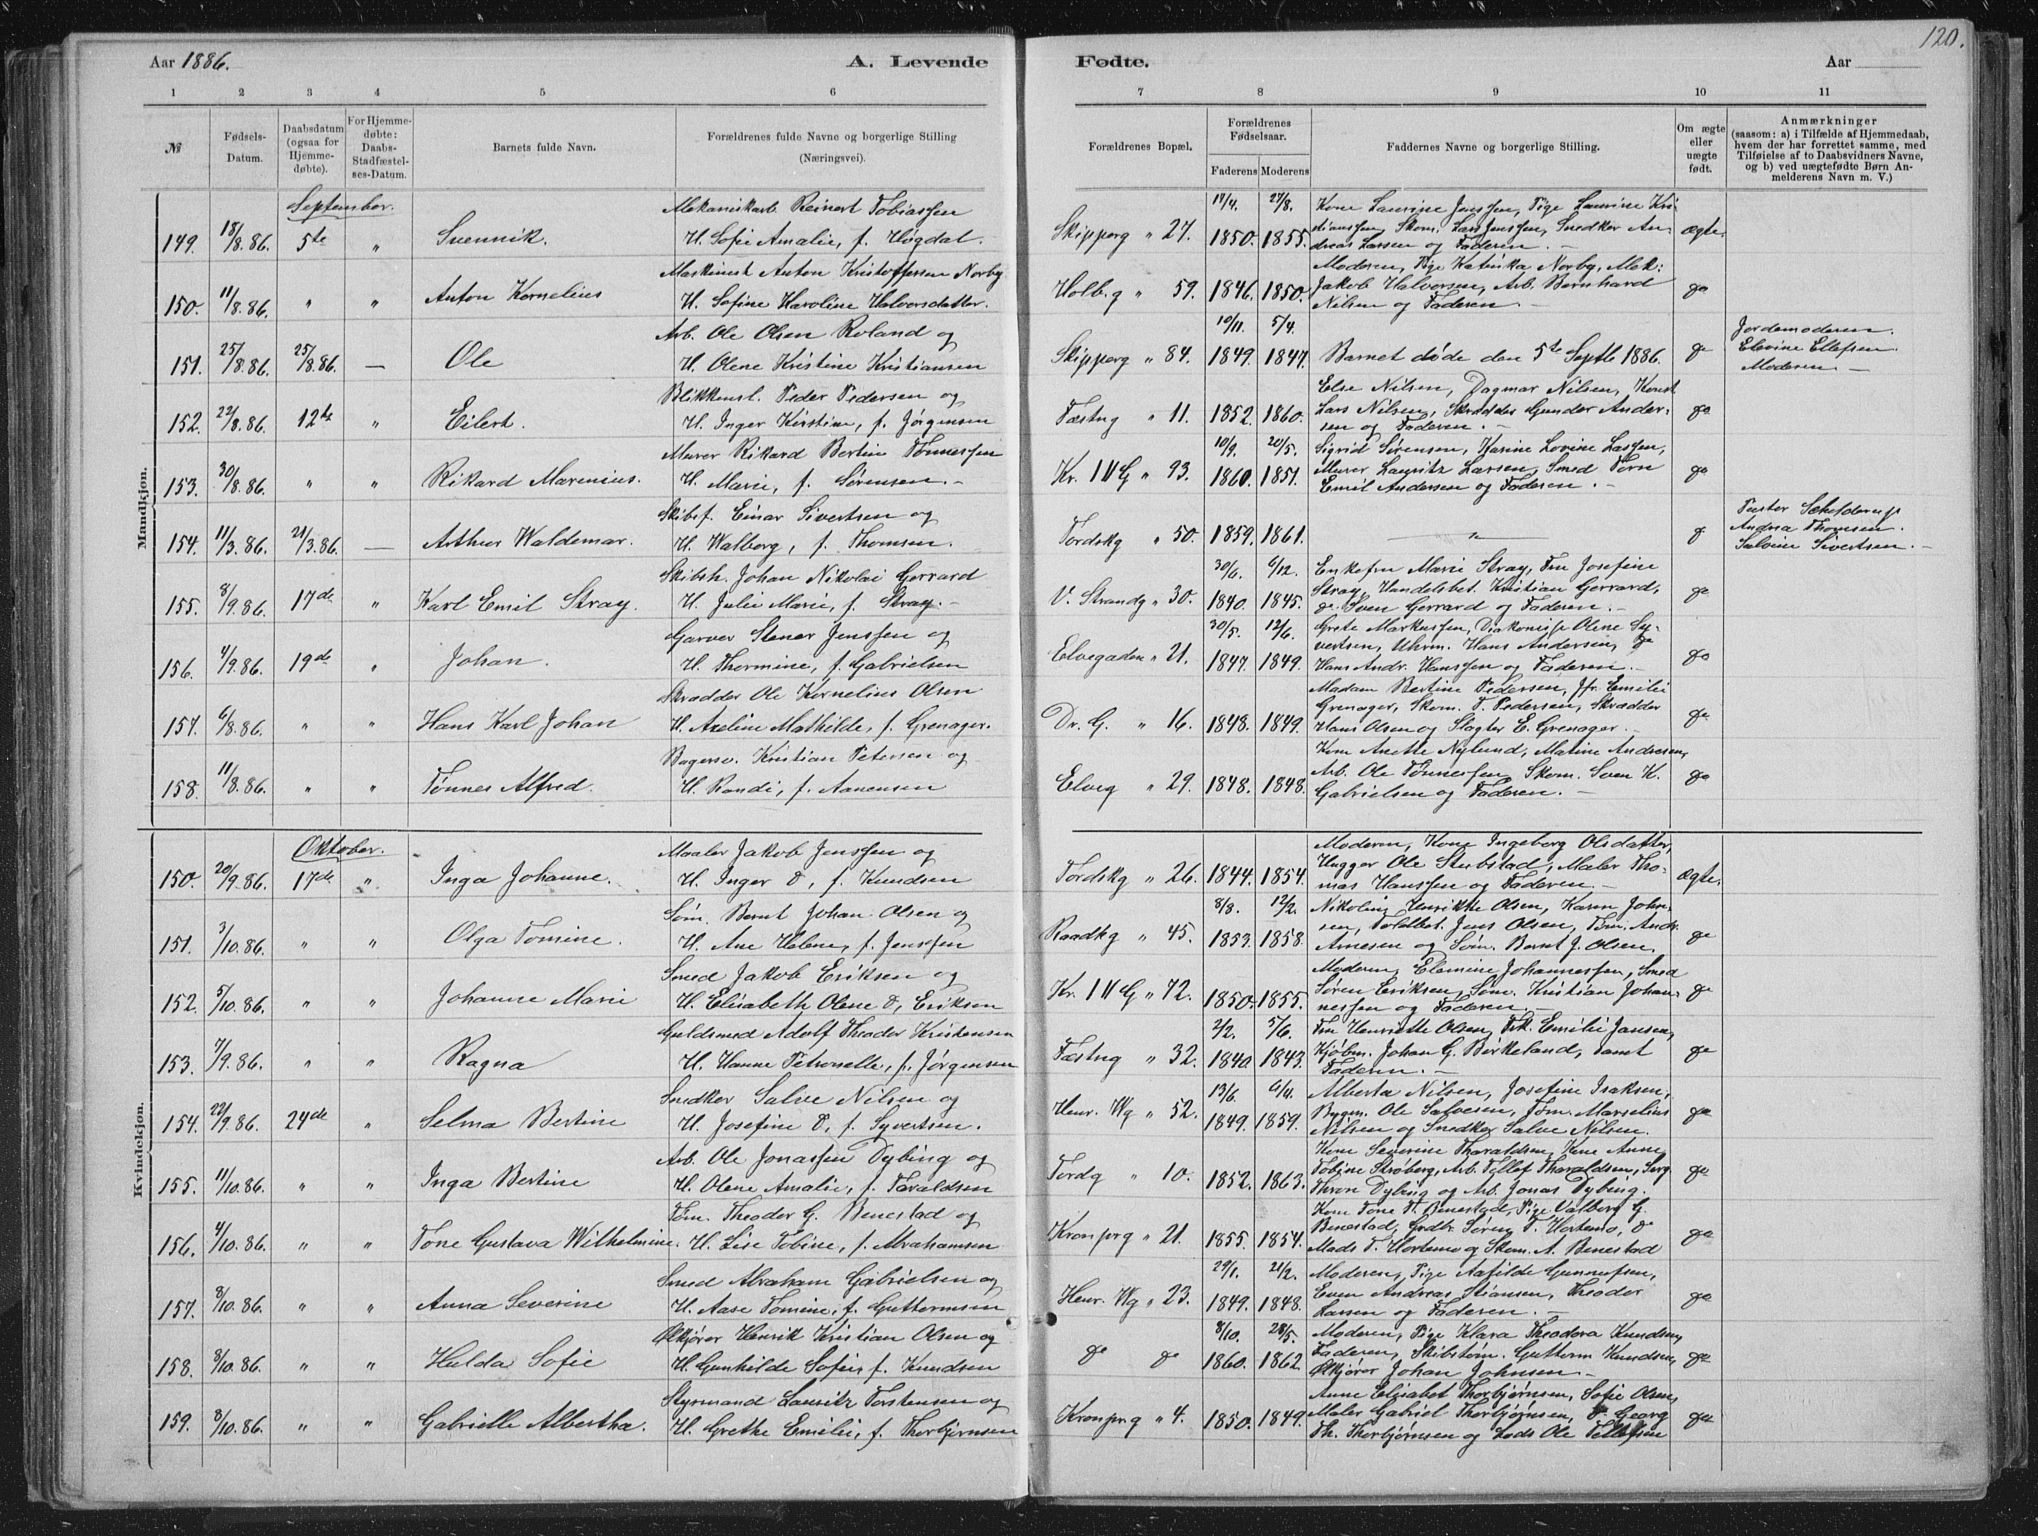 120.
Aar 1886. A. Levende Fødte. Aar
1 2 3 4 5 6 7 8 9 10 11
№ Fødsels-Datum. Daabsdatum (ogsaa for Hjemmedøbte). For Hjemmedøbte: Daabs-Stadfæstelses-Datum. Barnets fulde Navn. Forældrenes fulde Navne og borgerlige Stilling (Næringsvei). Forældrenes Bopæl. Forældrenes Fødselsaar. Faderens Moderens Faddernes Navne og borgerlige Stilling. Om ægte eller uægte født. Anmærkninger (saasom: a) i Tilfælde af Hjemmedaab, hvem der har forrettet samme, med Tilføielse af to Daabsvidners Navne, og b) ved uægtefødte Børn Anmelderens Navn m. V.)
Mandkjøn.
September.
Mekaniskarb. Reinert Tobiassen 17/4. 27/8. Kone Laurine Jenssen, Pige Laurine Kri-
149. 18/8.86. 5te " Svennik. H. Sofie Amalie, f. Høgdal. Skipperg " 27. 1850. 1855. stianssen, Skom. Lars Jenssen, Snedker An- ægte.
dreas Larsen og Faderen. —
Maskinist Anton Kristoffersen Norby Moderen, Pige Katinka Norby, Mek:
150. 11/8.86. " " Anton Kornelius H. Sofine Karoline Halvorsdatter. Holb.g " 59. 1846. 1850. Jakob Halvorsen, Arb. Bernhard do
Nilsen og Faderen. —
Arb. Ole Olsen Roland og 10/11. 5/4. Jordemoderen.
151. 25/8.86. 25/8.86. — Ole H. Olene Kristine Kristiansen Skipperg " 84. 1849. 1847. Barnet døde den 5te Septb 1886. do Elevine Ellefsen
Moderen —
Blikkensl. Peder Pedersen og Else Nilsen, Dagmar Nilsen, Konst.
152. 22/8.86. 12te " Eilert. H. Inger Kirstine, f. Jørgensen Fæstng " 11. 1852. 1860. Lars Nilsen, Skrædder Gunder Ander- do
sen og Faderen. —
Murer Rikard Bertin Tønnessen 10/9. 20/5. Sigrid Sørensen, Karine Lovine Larsen,
153. 30/8.86. " " Rikard Marenius. H. Marie, f. Sørensen. — Kr. IV G " 93. 1860. 1851. Murer Lauritz Larsen, Smed Tørn do
Emil Andersen og Faderen. —
Skibsf. Einar Sivertsen og Pastor Schelderup
154. 11/3.86. 21/3.86. — Arthur Waldemar. H. Walborg, f. Thomsen. Tordskg " 50. 1859. 1861. " d Andrea Thovesen.
Salvine Sivertsen. —
Skibsk. Johan Nikolai Gerrard 30/6. 6/12. Enkefru Marie Stray, Fru Josefine
155. 8/9.86. 17de " Karl Emil Stray. H. Julie Marie, f. Stray. — V. Strandg " 30. 1840. 1845. Stray, Handelsbet. Kristian Gerrard, do
do Sven Gerrard og Faderen. —
Garver Stener Jenssen og 30/5. 12/6. Grete Markussen, Diakonisse Olene Sy-
156. 4/9.86. 19de " Johan. H. Thormine, f. Gabrielsen Elvegaden " 21. 1847. 1849. vertsen, Uhrm. Hans Andersen, do do
Hans Andr. Hanssen og Faderen. —
Skrædder Ole Kornelius Olsen Madam Bertine Pedersen, Jfr. Emilie
157. 6/8.86. " " Hans Karl Johan H. Axeline Mathilde, f. Grenager. Dr. G. " 16. 1848. 1849. Grenager, Skom. T. Pedersen, Skrædder do
Hans Olsen og Slagter E. Grenager. —
Bagersv. Kristian Petersen og Kone Anette Nylund, Matine Andresen,
158. 11/8.86. " " Tønnes Alfred. H. Randi, f. Aanensen Elveg " 29. 1848. 1848. Arb. Ole Tønnessen, Skom. Sven K. do
Gabrielsen og Faderen. —
Kvindekjøn.
Oktober.
Maaler Jakob Jenssen og Moderen, Kone Ingeborg Olsdatter,
150. 20/9.86. 17de " Inga Johanne. H. Inger d, f. Knudsen Tordskg " 26. 1844. 1854. Hugger Ole Stubstad, Maler Tho- ægte.
mas Hanssen og Faderen. —
Søm. Bernt Johan Olsen og 8/8. 12/2. Nikoline Henrikke Olsen, Karen John-
151. 3/10.86. " " Olga Tomine. H. Ane Helene, f. Jenssen Raadhg " 45. 1853. 1858. sen, Toldbet. Jens Olsen, Tøm. Andr. do
Arnesen og Søm. Bernt J. Olsen.
Smed Jakob Eriksen og Moderen, Elamine Johannessen, Smed
152. 5/10.86. " " Johanne Marie H. Elisabeth Olene d, Eriksen Kr. IV G " 72. 1850. 1855. Søren Eriksen, Søm. Kristian Johan- do
nessen og Faderen. —
Guldsmed Adolf Theodor Kristensen 2/2. 5/6. Fru Henriette Olsen, Frk. Emilie Jansen,
153. 7/9.86. " " Ragna H. Hanne Petronelle, f. Jørgensen Fæstng " 32. 1840. 1843. Kjøbm. Johan G. Birkeland, samt do
Faderen. —
Snedker Salve Nilsen og 13/6. 9/4. Alberta Nilsen, Josefine Isaksen,
154. 22/9.86. 24de " Selma Bertine H. Josefine d, f. Syvertsen. Henr. Wg " 52. 1849. 1859. Bygm. Ole Salvesen, Tøm. Marselius do
Nilsen og Snedker Salve Nilsen.
Arb. Ole Jonassen Dybing og Kone Severine Tharaldsen, Kone Anne
155. 11/10.86. " " Inga Bertine H. Olene Amalie, f. Taraldsen Tordg " 10. 1852. 1863. Tobine Strøberg, Arb. Tellef Tharaldsen, Serg. do
Thron Dybing og Arb. Jonas Dybing.
Tøm. Theodor G. Benestad og Kone Tone T. Benestad, Pige Valborg G.
156. 4/10.86. " " Tone Gustava Wilhelmine. H. Lise Tobine, f. Abrahamsen Kronprg " 21. 1855. 1854. Benestad, Grdbr. Søren T. Hortemo, do do
Mads T. Hortemo og Skom. A. Benestad
Smed Abraham Gabrielsen og 29/1. 21/2. Moderen, Pige Aasilde Gunnufsen,
157. 8/10.86. " " Anna Severine H. Aase Tomine, f. Guttormsen Henr. Wg " 23. 1849. 1848. Even Andreas Stiansen, Theodor do
Larsen og Faderen. —
Ølkjører Henrik Kristian Olsen og 8/10. 28/5. Moderen, Pige Klara Theodora Knudsen,
158. 8/10.86. " " Hulda Sofie H. Gunhilde Sofie, f. Knudsen do do 1860. 1862. Faderen, Skibstøm. Guttorm Knudsen, do
Ølkjører Johan Johnsen. —
Styrmand Lauritz Torstensen og Anne Elisabet Thorbjørnsen, Sofie Olsen,
159. 8/10.86. " " Gabrielle Albertha. H. Grethe Emilie, f. Thorbjørnsen Kronprg " 4. 1850. 1849. Maler Gabriel Thorbjørnsen, do Georg do
Th. Thorbjørnsen og Lods Ole Tellefsen